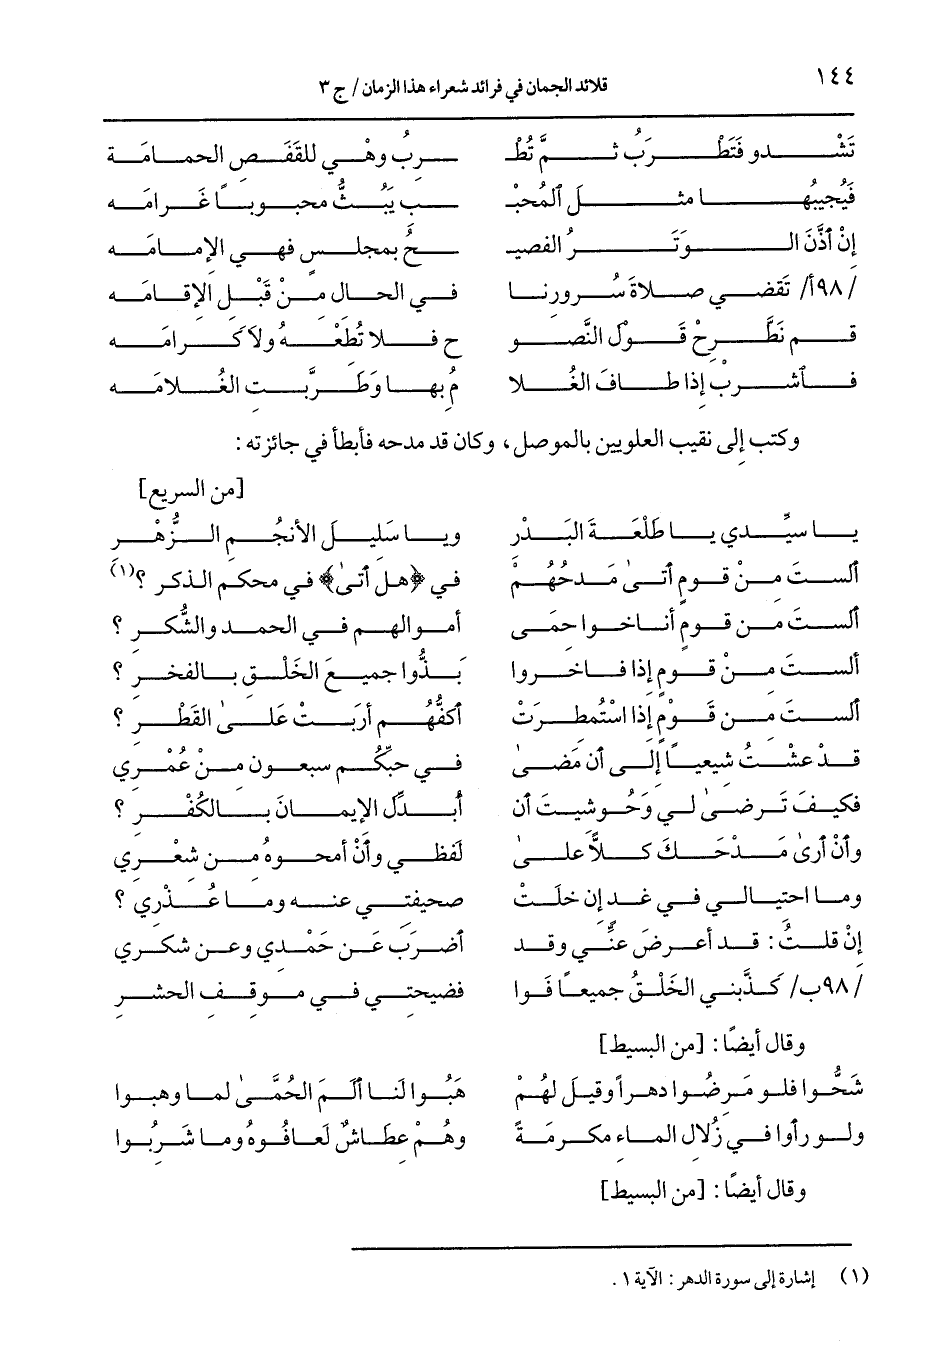 ١٤٤
قلائد الجمان في فرائد شعراء هذا الزمان / ج ٣
تَشدو فَتَطْرَبُ ثمَّ تُطْـ ـرِبُ وهْي للقَفَص الحمامَة
فَيُجيبُها مثل ٱلمُحبْـ ـبِ يَبُثُّ محبوباً غَرامَه
إنْ أذَّنَ الوَتَرُ الفصيـ ـحُ بمجلسٍ فهي الإمامَه
/٩٨أ/ تَقضي صلاةَ سُرورنا في الحالِ منْ قَبْلِ الإقامَه
قم نَطَّرِحْ قَولَ النَّصو ح فلا تُطعْهُ ولاَ كَرامَه
فٱشربْ إذا طافَ الغُلا مُ بها وَطَرَّبتِ الغُلامَه
وكتب إلى نقيب العلويين بالموصل، وكان قد مدحه فأبطأ في جائزته:
[من السريع]
يا سيِّدي يا طَلْعَةَ البَدْرِ ويا سَليلَ الأنجُمِ الزُّهْرِ
ألستَ منْ قومٍ أتىٰ مَدحُهُمْ في ﴿هل أتىٰ﴾ في محكم الذكر ؟(١)
ألستَ من قومٍ أناخوا حمَى أموالهم في الحمد والشُّكرِ ؟
ألستَ منْ قومٍ إذا فاخروا بَذُّوا جميعَ الخَلْقِ بالفخرِ ؟
ألستَ من قَوْمٍ إذا اسْتُمطِرَتْ أكفُّهُم أرَبَتْ علىٰ القَطْرِ ؟
قدْ عشْتُ شيعياً إلى أن مَضىٰ في حبِّكُم سبعون منْ عُمْري
فكيفَ تَرضىٰ لي وَحُوشيتَ أن أُبدلَ الإيمانَ بالكُفْرِ ؟
وأنْ أرىٰ مَدْحَكَ كلاًّ علىٰ لَفظي وأنْ أمحوهُ من شعْري
وما احتيالي في غدٍ إن خلَتْ صحيفتي عنه وما عُذْري ؟
إنْ قلتُ: قد أعرضَ عنِّي وقد أضربَ عَن حَمْدي وعن شكري
/٩٨ب/ كَذَّبني الخَلْقُ جميعاً فَوا فضيحتي في موقفِ الحشرِ
وقال أيضًا: [من البسيط]
شَحُّوا فلو مَرضُوا دهراً وقيل لهُمْ هَبُوا لَنا أَلَمَ الحُمَّىٰ لما وهبوا
ولو رأوا في زُلالِ الماءِ مكرمَةً وهُمْ عِطاشٌ لَعافُوهُ وما شَرِبُوا
وقال أيضًا: [من البسيط]
(١) إشارة إلى سورة الدهر: الآية ١.